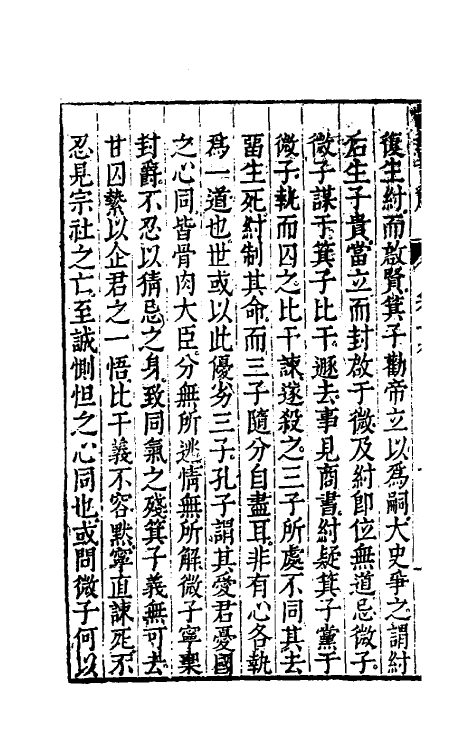 復生紂而啟賢箕子勸帝立以爲嗣大史爭之謂紂
后生子貴當立而封啟于微及紂卽位無道忌微子
微子謀于箕子比干遯去事見商書紂疑箕子黨于
微子執而囚之比干諫遂殺之三子所處不同其去
畱生死紂制其命而三子隨分自盡耳非有心各執
爲一道也世或以此優劣三子孔子謂其愛君憂國
之心同皆骨肉大臣分無所逃情無所解微子寧棄
封爵不忍以猜忌之身致同氣之殘箕子義無可去
甘囚縶以企君之一悟比干義不容默寧直諫死不
忍見宗社之亡至誠惻怛之心同也或問微子何以